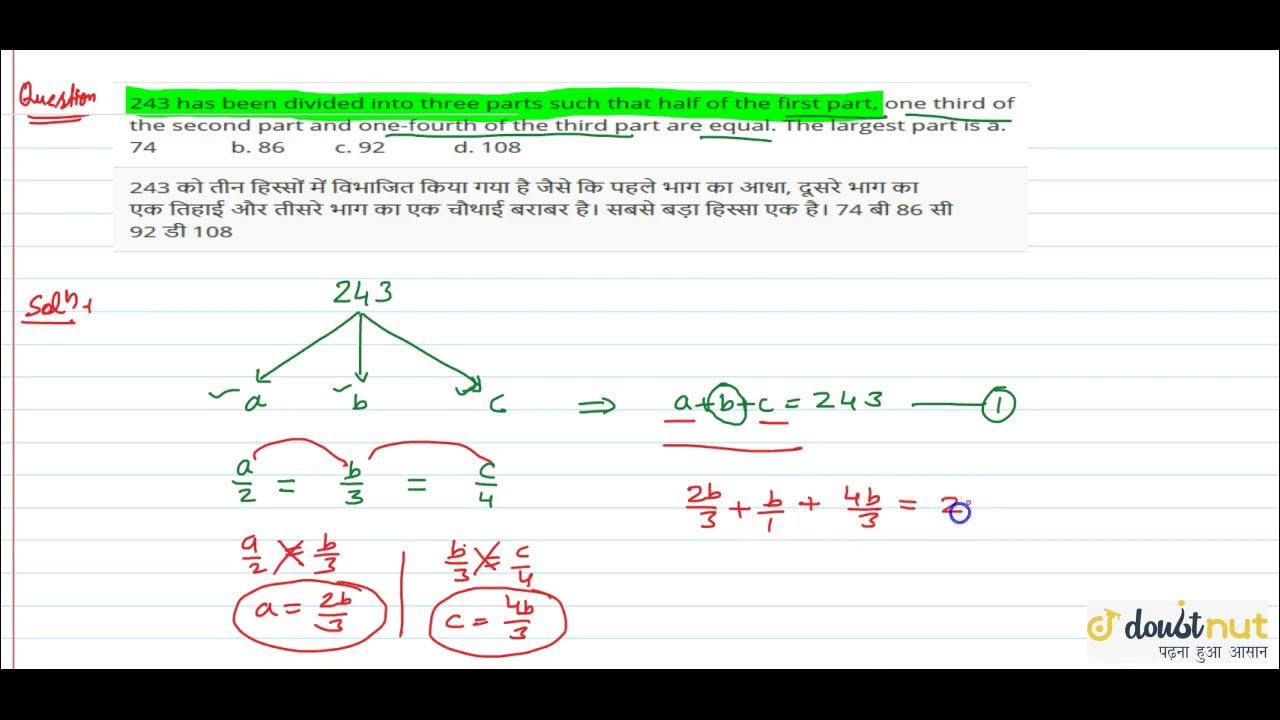 Question
243 has been divided into three parts such that half of the first part, one third of
the second part and one-fourth of the third part are equal. The largest part is a.
74 b. 86 c. 92 d. 108
243 को तीन हिस्सों में विभाजित किया गया है जैसे कि पहले भाग का आधा, दूसरे भाग का
एक तिहाई और तीसरे भाग का एक चौथाई बराबर है। सबसे बड़ा हिस्सा एक है। 74 बी 86 सी
92 डी 108
Solⁿ
243
a b c ⇒ a+b+c = 243 — 1
a/2 = b/3 = c/4
2b/3 + b/1 + 4b/3 = 2
a/2 = b/3 b/3 = c/4
a = 2b/3 c = 4b/3
doubtnut
पढ़ना हुआ आसान